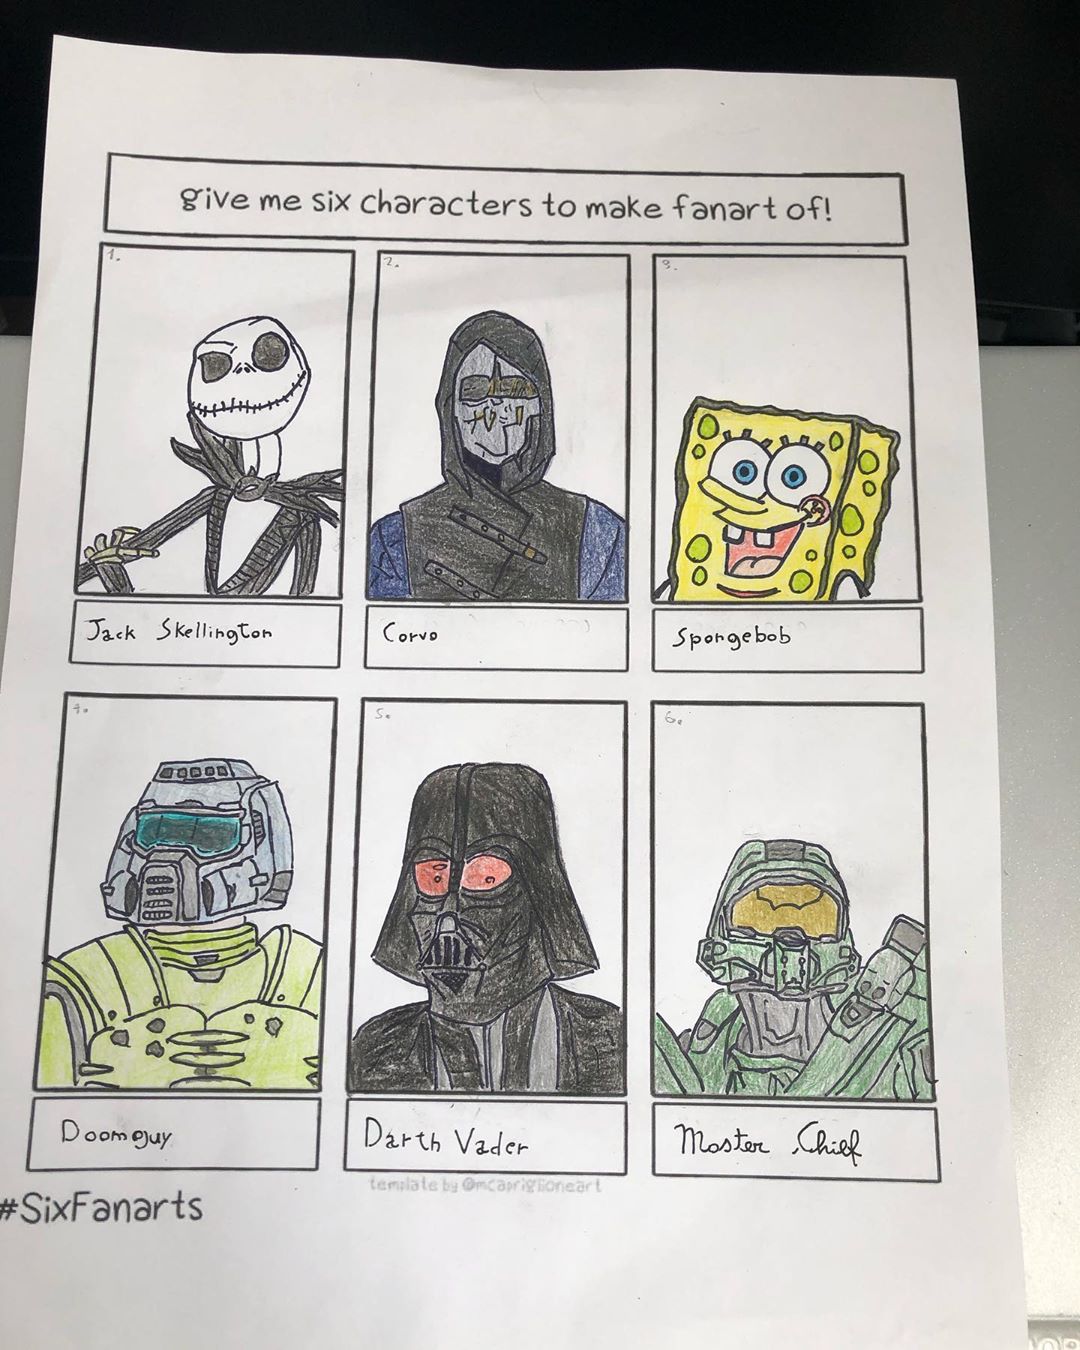 give me six characters to make fanart of!
1.
2.
3.
Jack Skellington
Corvo
Spongebob
4.
5.
6.
Doomguy
Darth Vader
Master Chief
template by @mcapriglioneart
#SixFanarts